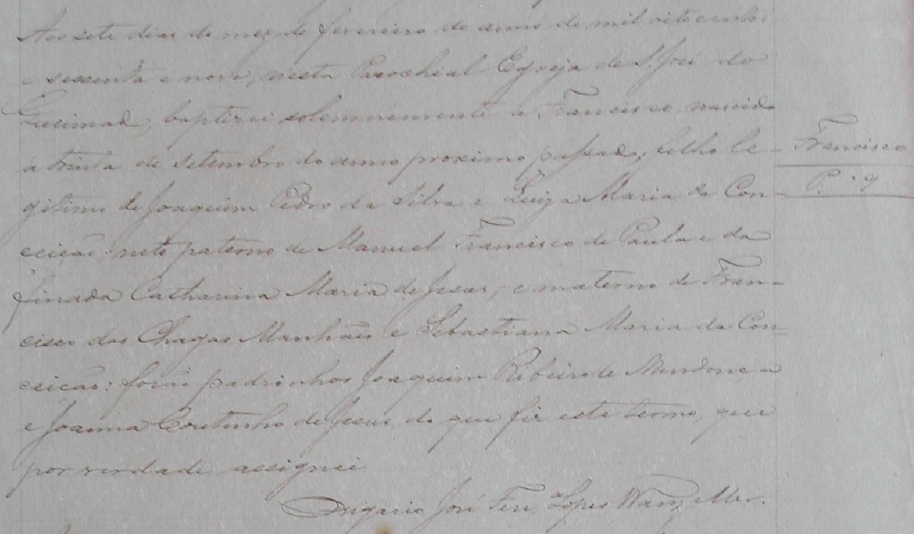 Aos sete dias do mez de fevereiro do anno de mil oitocentos
e sessenta e nove, nesta Parochial Egreja de S. José do
Queimado, baptizei solemnemente a Francisco nascido
a trinta de Setembro do anno proximo passado, filho le-
Francisco
gitimo de Joaquim Pedro da Silva e Luiza Maria da Con-
P. 9
ceição: neto paterno de Manuel Francisco de Paula e da
finada Catharina Maria de Jesus, e materno de Fran-
cisco das Chagas Manhães e Sebastiana Maria da Con-
ceição: forão padrinhos Joaquim Ribeiro de Mendonça
e Joanna Coutinho de Jesus, do que fiz este termo, que
por verdade assignei
Vigario José Ferª Lopes